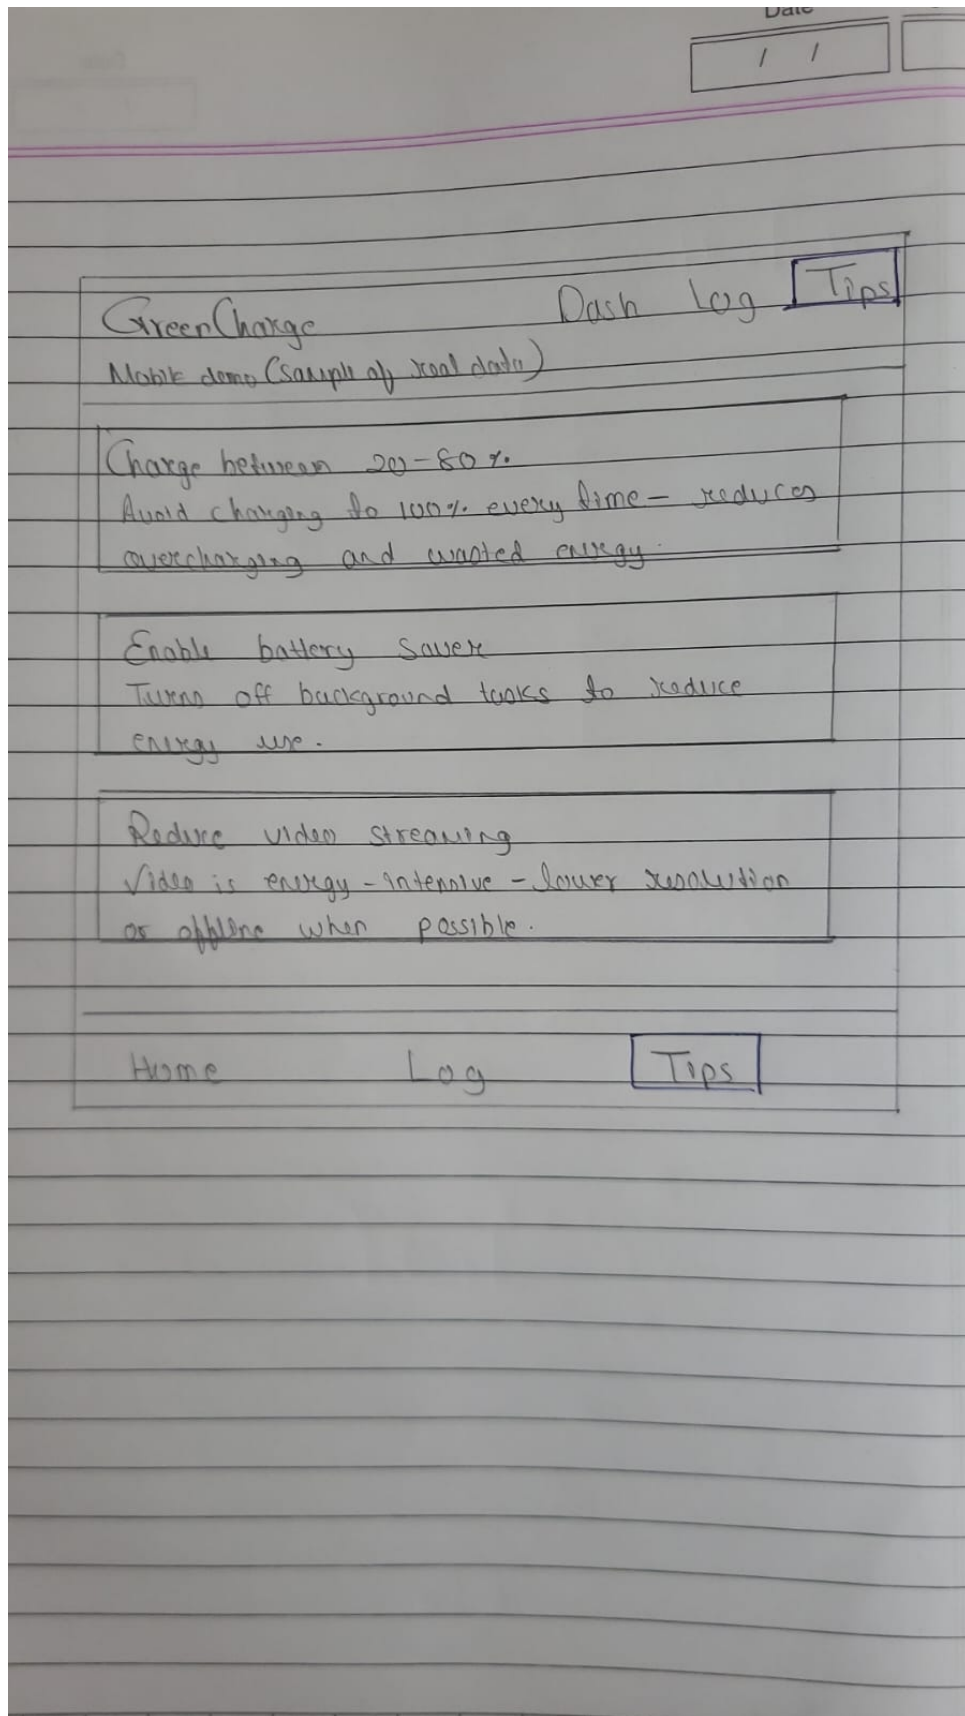 Date
/ /
GreenCharge Dash Log Tips
Mobile demo (sample of real data)
Charge between 20-80%
Avoid charging to 100% every time - reduces
overcharging and wasted energy.
Enable battery saver
Turns off background tasks to reduce
energy use.
Reduce video streaming
Video is energy-intensive - lower resolution
or offline when possible.
Home Log Tips